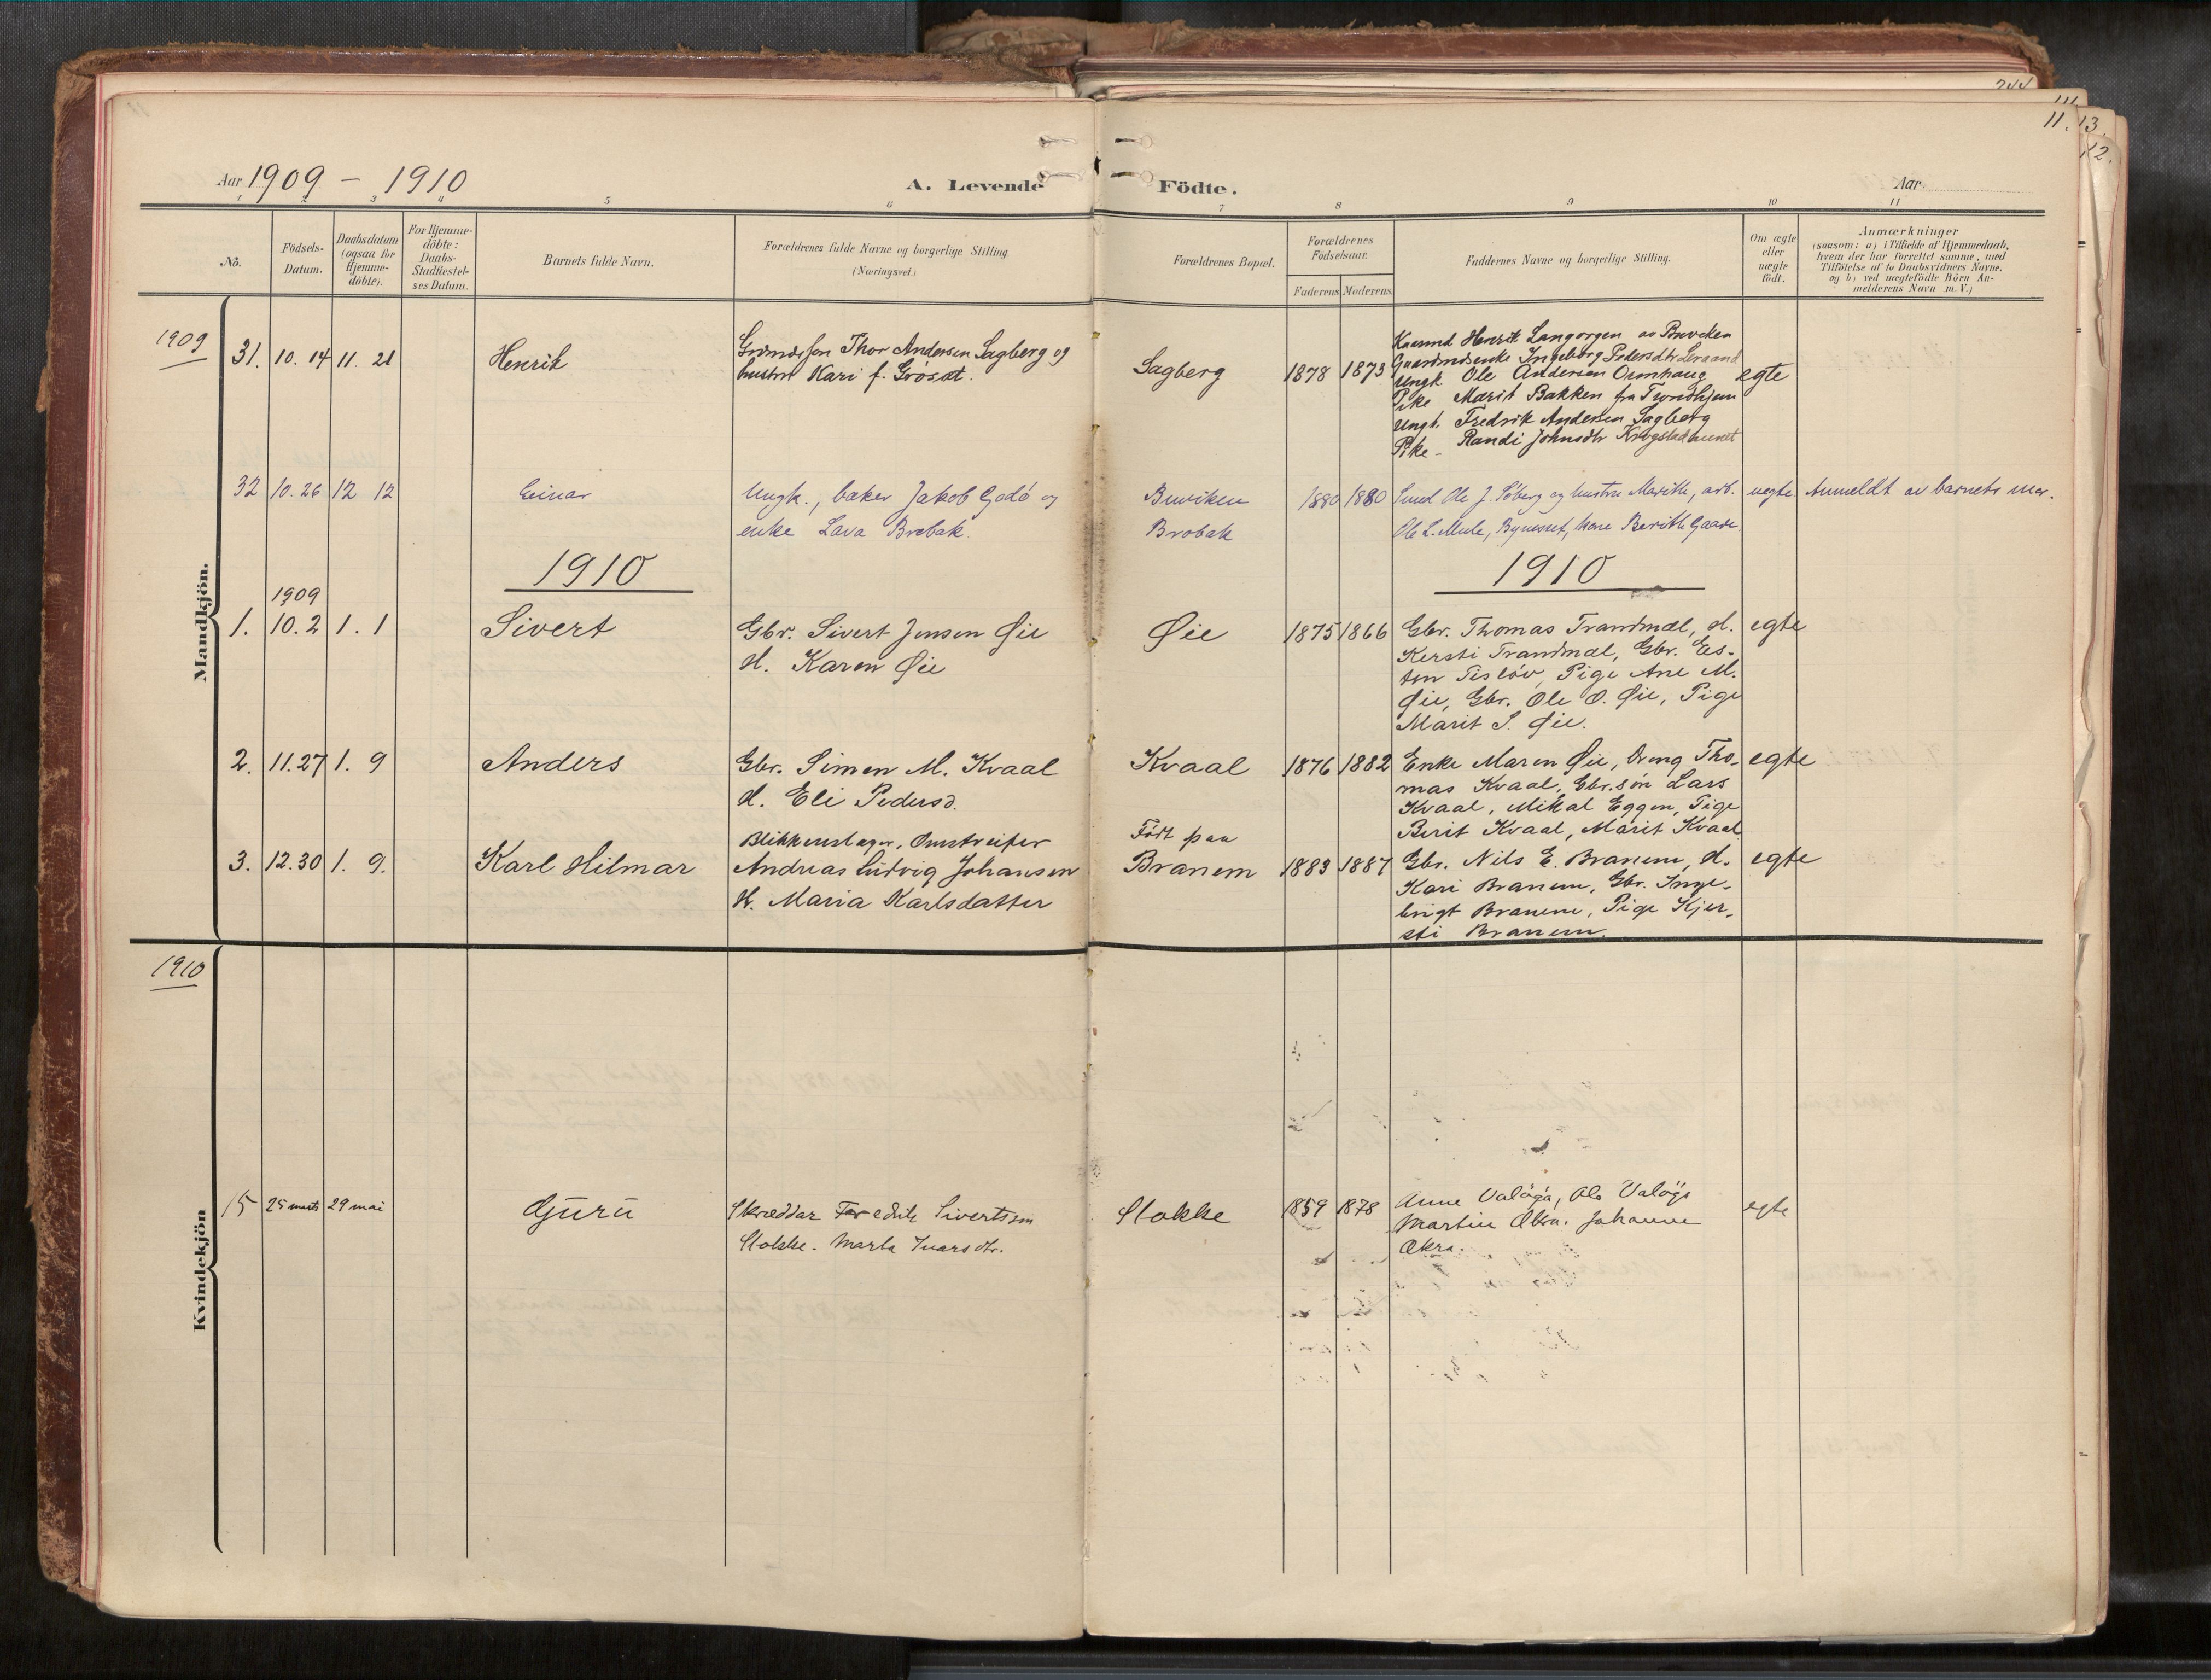 11.
13.
12.
Aar 1909 - 1910
A. Levende Födte.
Aar
1 2 3 4 5 6 7 8 9 10 11
No.
Födsels-
Datum.
Daabsdatum
(ogsaa for
Hjemme-
döbte).
For Hjemme-
döbte:
Daabs-
Stadfæstel-
ses Datum.
Barnets fulde Navn.
Forældrenes fulde Navne og borgerlige Stilling
(Næringsvei.)
Forældrenes Bopæl.
Forældrenes
Födselsaar.
Faderens Moderens
Faddernes Navne og borgerlige Stilling.
Om ægte
eller
uægte
födt.
Anmærkninger
(saasom: a) i Tilfælde af Hjemmedaab,
hvem der har forrettet samme, med
Tilföielse af to Daabsvidners Navne,
og b) ved uægtefödte Börn An-
melderens Navn m. V.)
Mandkjön.
1909
31. 10. 14 11. 21 Henrik
Thor Andersen Sagberg og
hustru Kari f. Grösæt.
Sagberg 1878 1873
Henrik Langorgen av Buvcken
Ingeborg Pedersdtr
Ungk. Ole Andersen Ormhaug
Pike Marit Bakken fra Trondhjem
Ungk. Fredrik Andersen Sagberg
Pike - Randi Johnsdtr
egte
32 10. 26 12 12 Einar
Ungk., baker Jakob Godö og
enke Lava Brobak.
Buviken
Brobak
1880 1880
Smed Ole J. Söberg og hustru Marith, arb.
Ole L. Mule, Bynesset, kone Berith Gaare.
uegte
Anmeldt av barnets mor.
1910
1910
1909
1. 10. 2 1. 1 Sivert
Gbr. Sivert Jensen Øie
H. Karen Øie
Øie 1875 1866
Gbr. Thomas Trandmæl, H.
Kersti Trandmæl, Gbr. Es-
ten Tislöv, Pige Ane M.
Øie, Gbr. Ole O. Øie, Pige
Marit S. Øie.
egte
2. 11. 27 1. 9 Anders
Gbr. Simen M. Kvaal
H. Eli Pedersd.
Kvaal 1876 1882
Enke Maren Øie, Dreng Tho-
mas Kvaal, Gbr.sön Lars
Kvaal, Mikal Eggen, Pige
Berit Kvaal, Marit Kvaal
egte
3. 12. 30 1. 9. Karl Hilmar
Blikkenslager, Omstreifer
Andreas Ludvig Johansen
H. Maria Karlsdatter
Födt paa
Branem 1883 1887
Gbr. Nils E. Branem, H.
Kari Branem, Gbr. Inge-
brigt Branem, Pige Kjer-
sti Branem.
egte
1910
Kvindekjön
15 25 marts 29 mai Guru
Skræddar Fredrik Sivertsen
Stokke. Marta Ivarsdtr.
Stokke 1859 1878
Anne Valöya, Ole Valöya
Martin Økra. Johanne
Økra.
egte